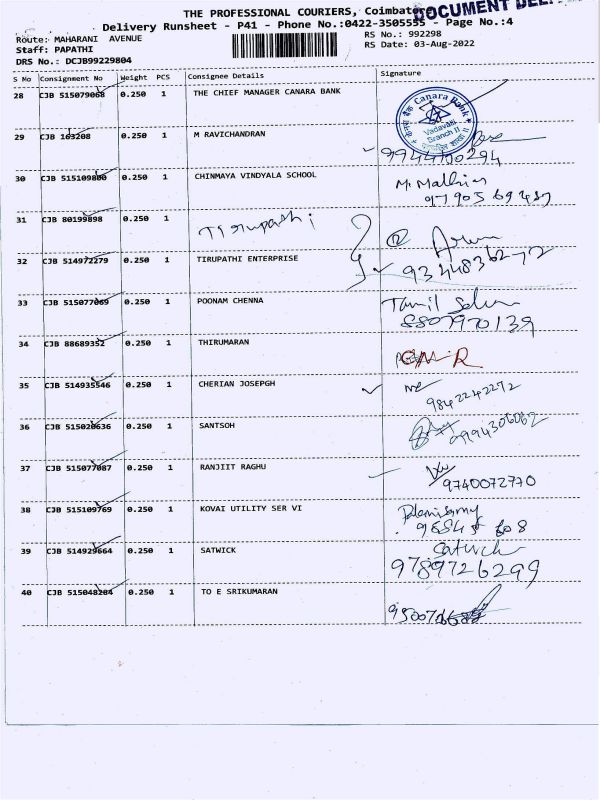 THE PROFESSIONAL COURIERS, Coimbatore
DOCUMENT DEL
Delivery Runsheet - P41 - Phone No.:0422-3505555 - Page No.:4
Route: MAHARANI AVENUE
RS No.: 992298
Staff: PAPATHI
RS Date: 03-Aug-2022
DRS No.: DCJB99229804
S No Consignment No Weight PCS Consignee Details Signature
28 CJB 515079068 0.250 1 THE CHIEF MANAGER CANARA BANK
Canara Bank
Vadavalli
Branch II
29 CJB 163208 0.250 1 M RAVICHANDRAN
9944730294
30 CJB 515109800 0.250 1 CHINMAYA VINDYALA SCHOOL
31 CJB 80199898 0.250 1 Tirupathi
Arun
32 CJB 514972279 0.250 1 TIRUPATHI ENTERPRISE
9344836272
33 CJB 515077069 0.250 1 POONAM CHENNA
Tamil Selvan
8807970139
34 CJB 88689352 0.250 1 THIRUMARAN
35 CJB 514935546 0.250 1 CHERIAN JOSEPGH
9842242272
36 CJB 515028636 0.250 1 SANTSOH
9994306062
37 CJB 515077087 0.250 1 RANJIIT RAGHU
9740072770
38 CJB 515109769 0.250 1 KOVAI UTILITY SER VI
Palanisamy
39 CJB 514929664 0.250 1 SATWICK
Satwick
9789726299
40 CJB 515048284 0.250 1 TO E SRIKUMARAN